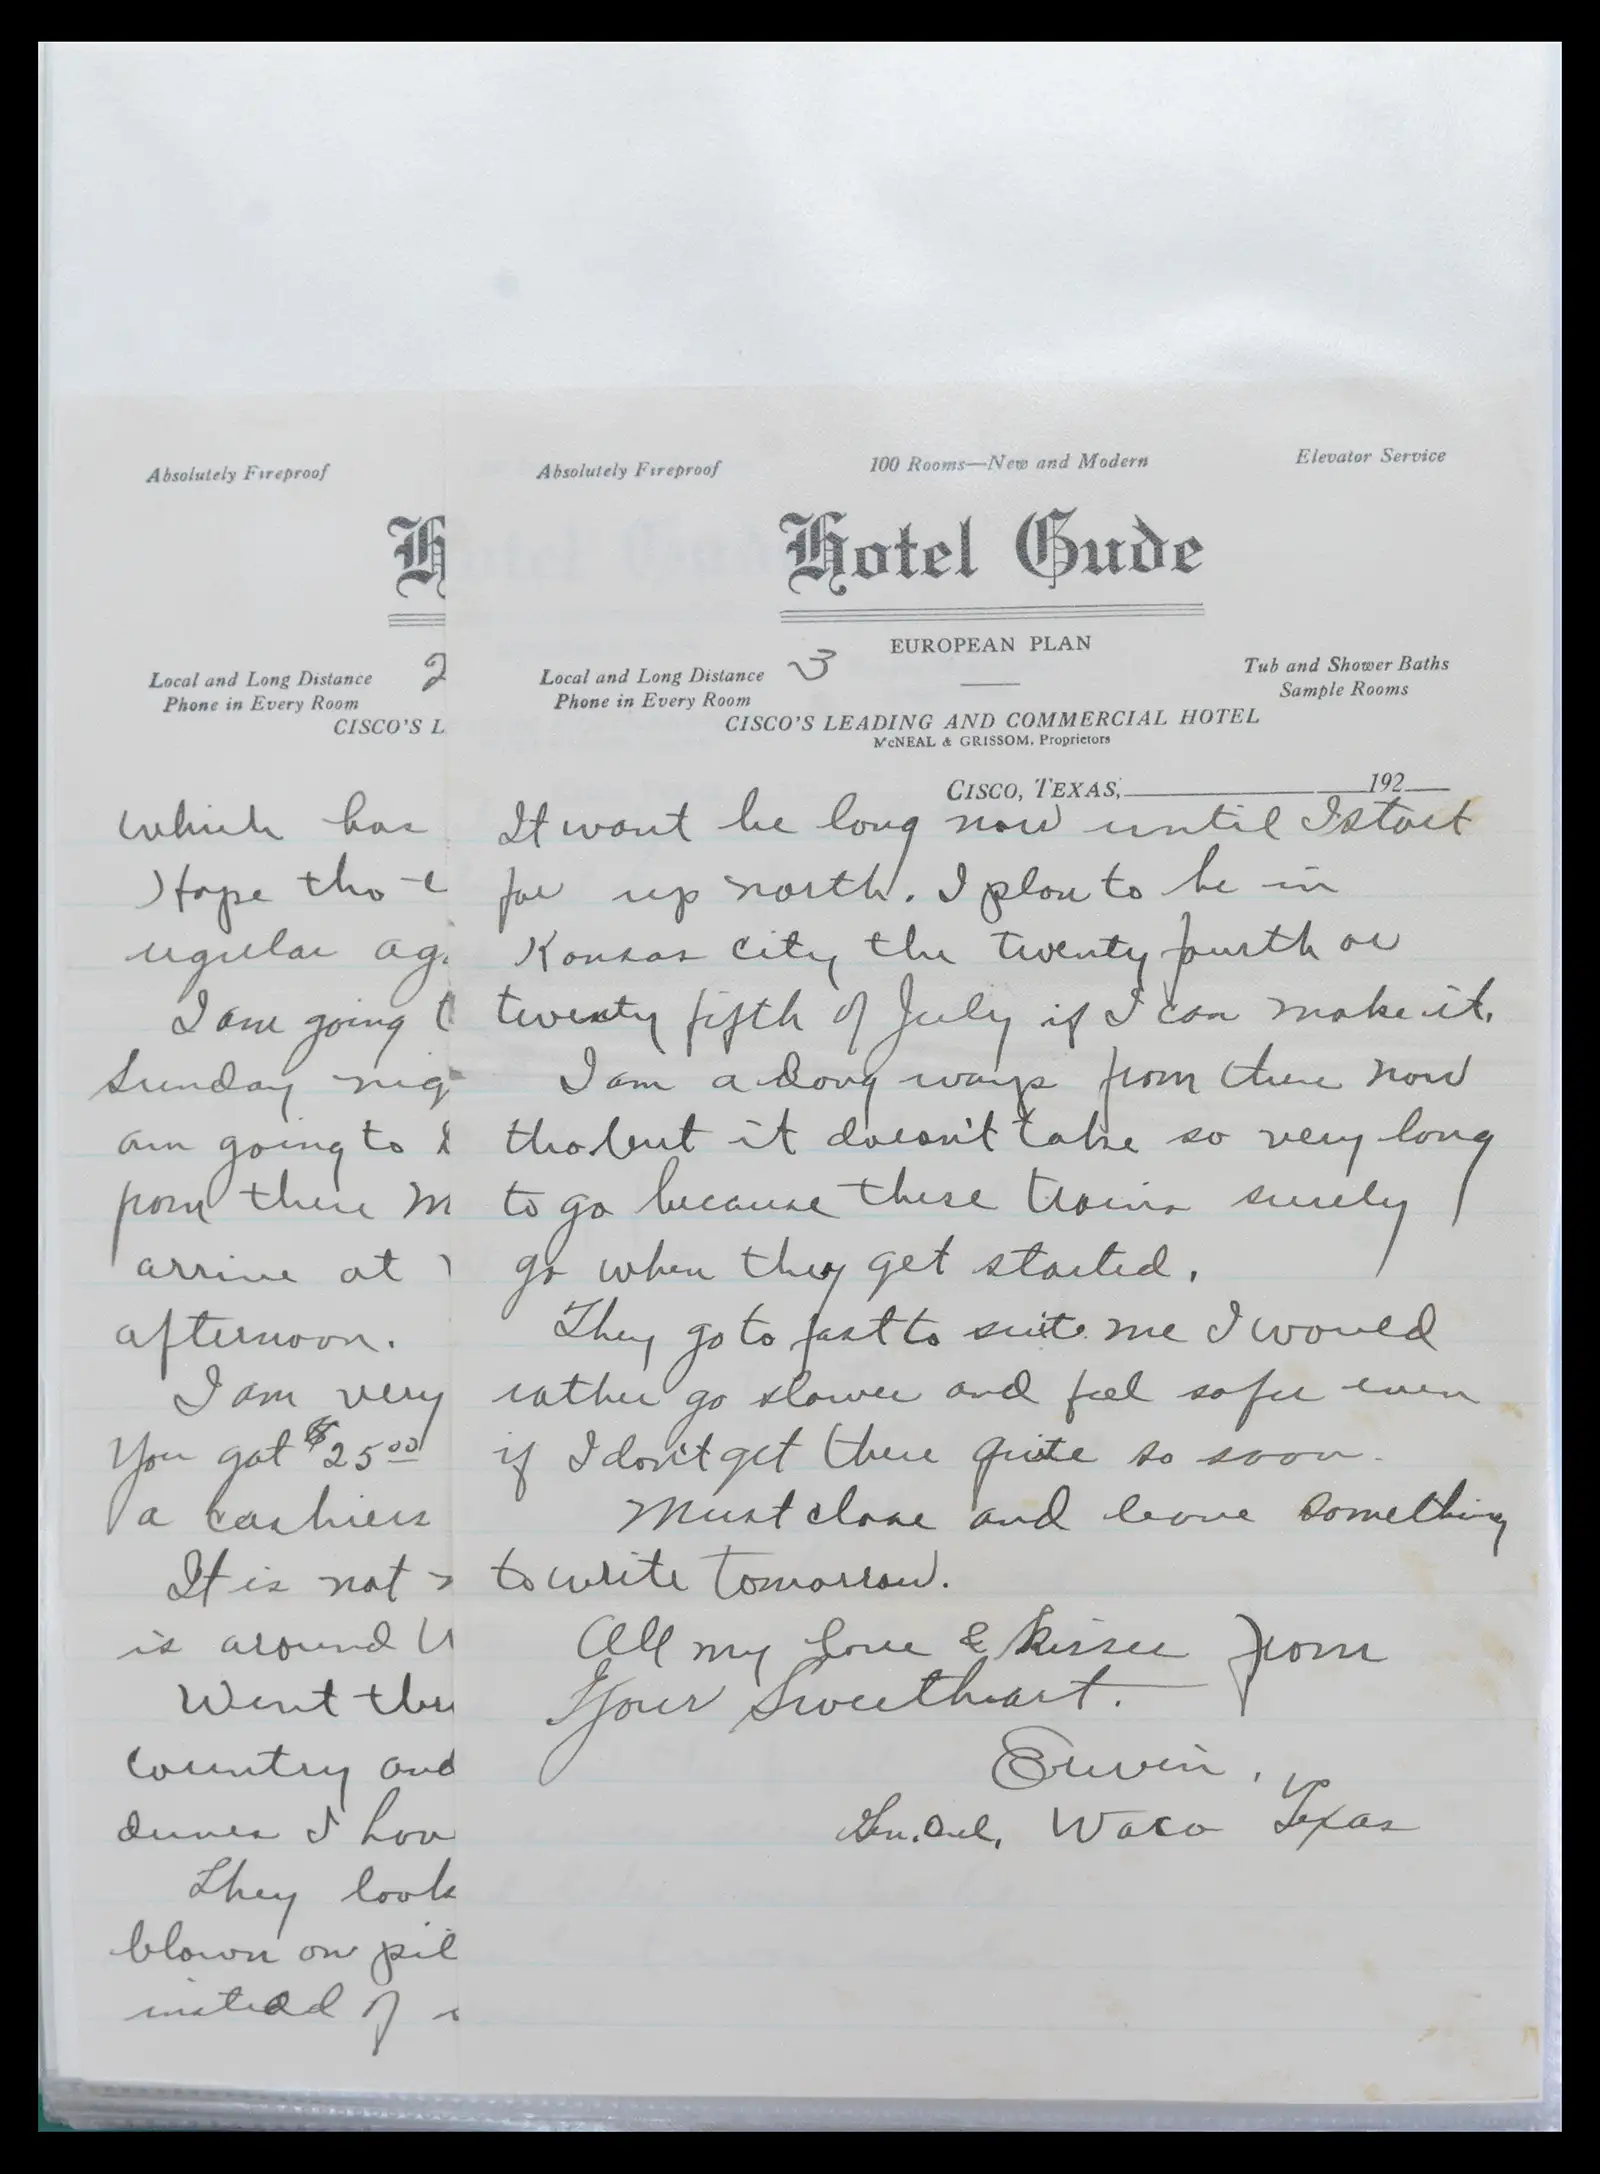 Absolutely Fireproof
H
Local and Long Distance
Phone in Every Room
2
CISCO'S L
which has
Hope tho
regular ag
I am going t
Sunday nig
am going to
from there M
arrive at
afternoon.
I am very
You got $25.00
a cashiers
It is not
is around W
Went thru
country and
dunes I hav
They look
blown on pil
instead of
Absolutely Fireproof
100 Rooms—New and Modern
Elevator Service
Hotel Gude
EUROPEAN PLAN
Local and Long Distance
Phone in Every Room
3
Tub and Shower Baths
Sample Rooms
CISCO'S LEADING AND COMMERCIAL HOTEL
McNEAL & GRISSOM, Proprietors
CISCO, TEXAS, 192
It wont be long now until I start
for up north. I plan to be in
Kansas City the twenty fourth or
twenty fifth of July if I can make it.
I am a long ways from there now
tho but it doesn't take so very long
to go because these trains surely
go when they get started.
They go to fast to suite me I would
rather go slower and feel safer even
if I don't get there quite so soon.
Must close and leave something
to write tomorrow.
All my love & kisses from
Your Sweetheart.
Erwin,
Gen. Del. Waco Texas